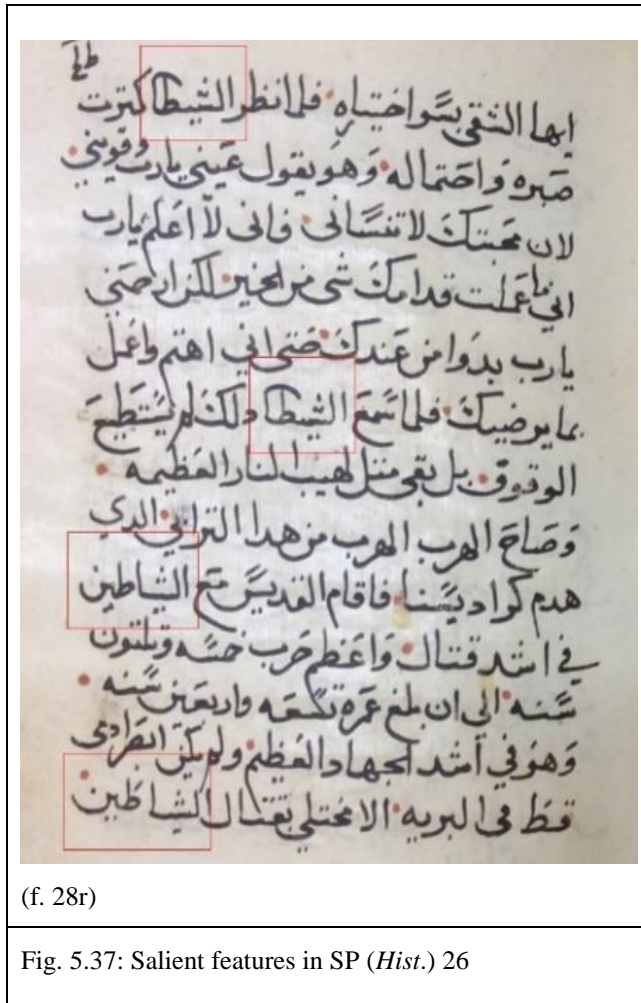 ايها الشقى بسو اختياره فلما نظر الشيطا كترت
صبره واحتماله وهو يقول عينى يارب وقوينى
لان محبتك لاتنسانى فانى لا اعلم يارب
انى ما عملت قدامك شى من الخير لكن ارحمنى
يارب بدوا من عندك حتى انى اهتم واعمل
بما يرضيك فلما سمع الشيطا دلك لم يستطيع
الوقوف بل بقى متل لهيب النار العظيمه
وصاح الهرب الهرب من هدا الترابى الدي
هدم كراديسنا فاقام القديس مع الشياطين
في اشد قتال واعظم حرب خمسه وتلتون
سنه الي ان بلغ عمره تسعه واربعين سنه
وهو في اشد الجهاد العظيم ولم يكن
قط فى البريه الا مختلي بقتال الشياطين
(f. 28r)
Fig. 5.37: Salient features in SP (Hist.) 26